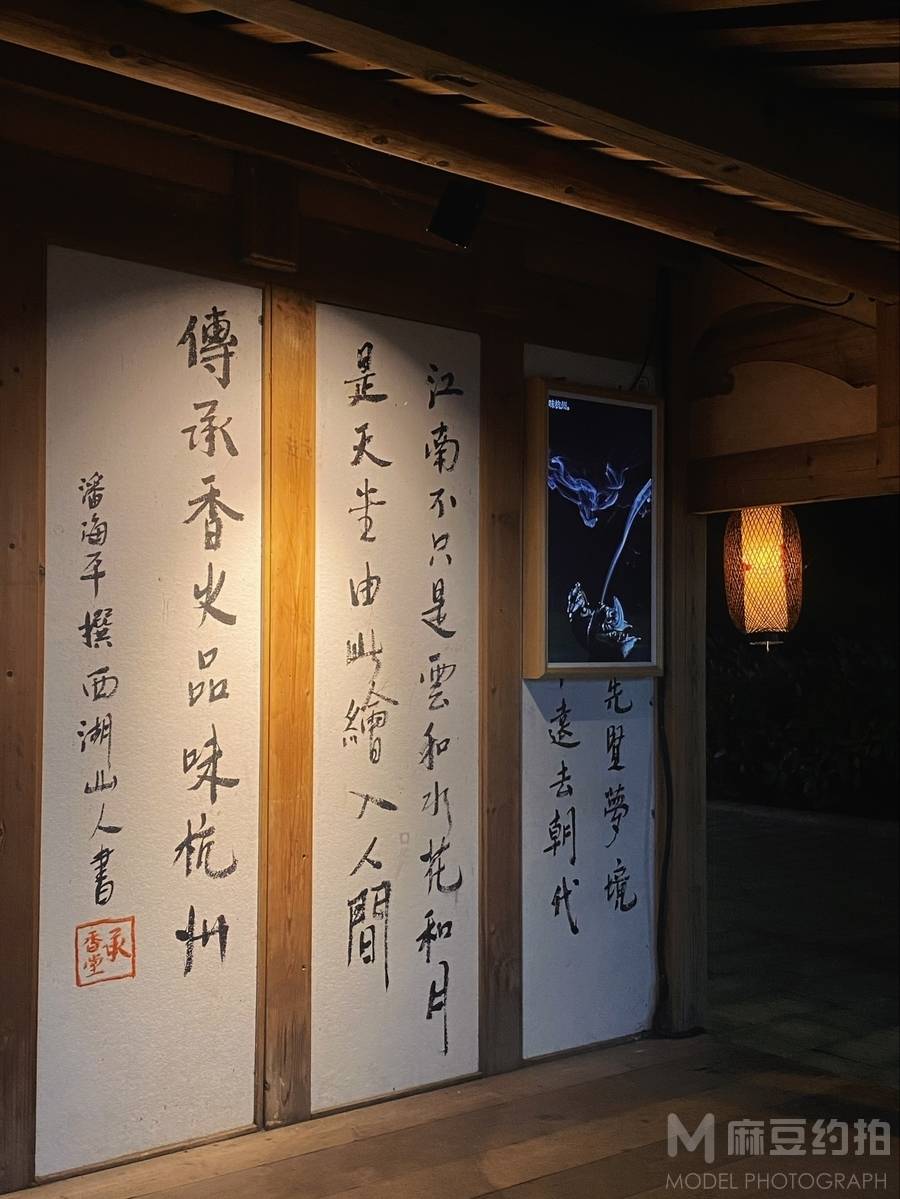 味杭州。
先 夢境
遠去朝代
江南不只是雲和水花和月
是天堂由此繪入人間
傳承香火品味杭州
潘海平撰西湖山人書
承香堂
M 麻豆约拍
MODEL PHOTOGRAPH